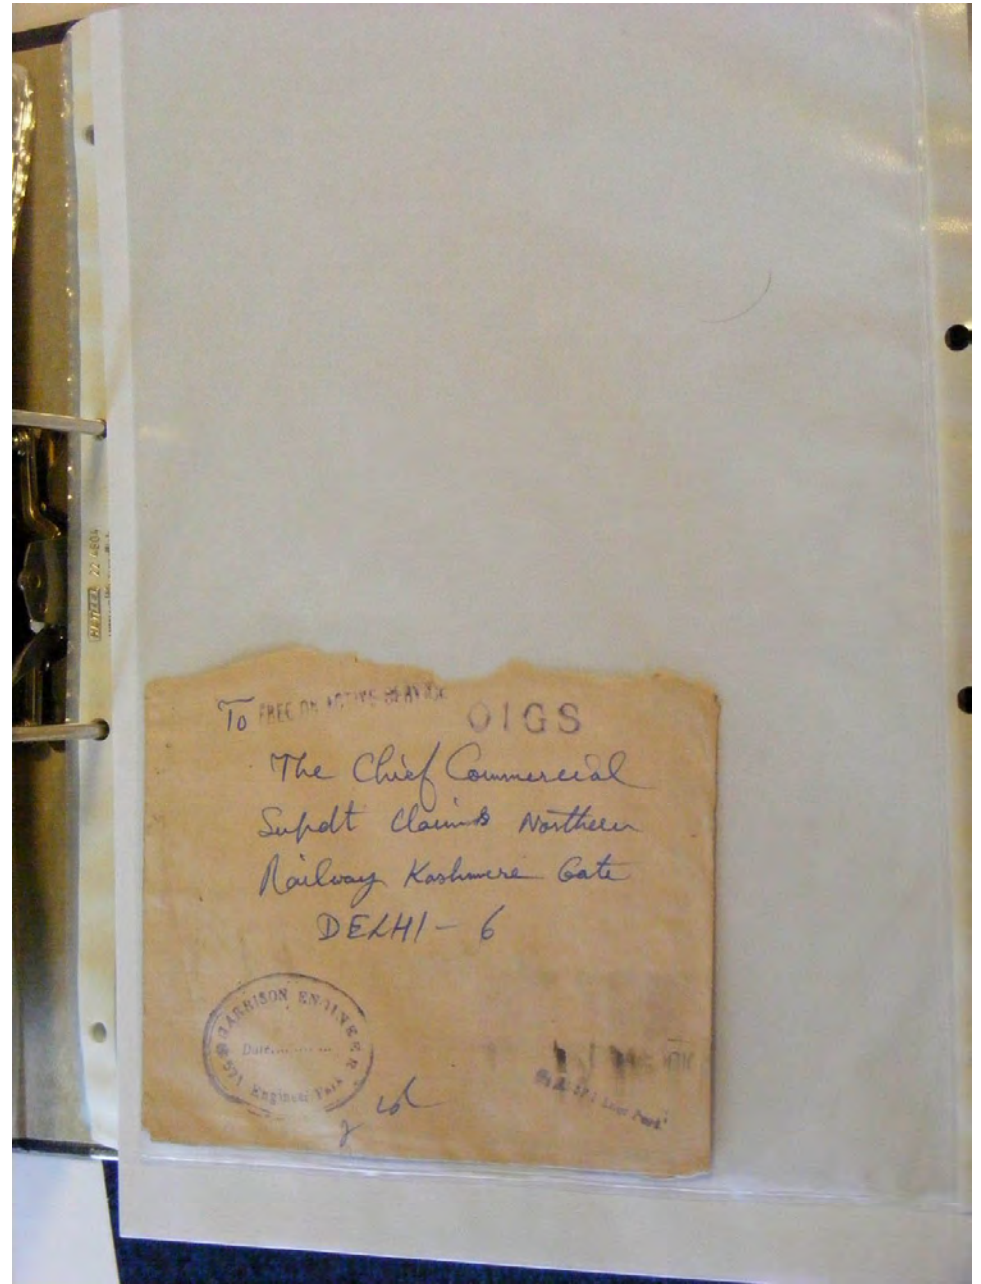 To FREE ON ACTIVE SERVICE
OIGS
The Chief Commercial
Supdt Claims Northern
Railway Kashmere Gate
DELHI - 6
GARRISON ENGINEER
Date
571 Engineer Park
571 Engr Park
HETZEL 22 4804